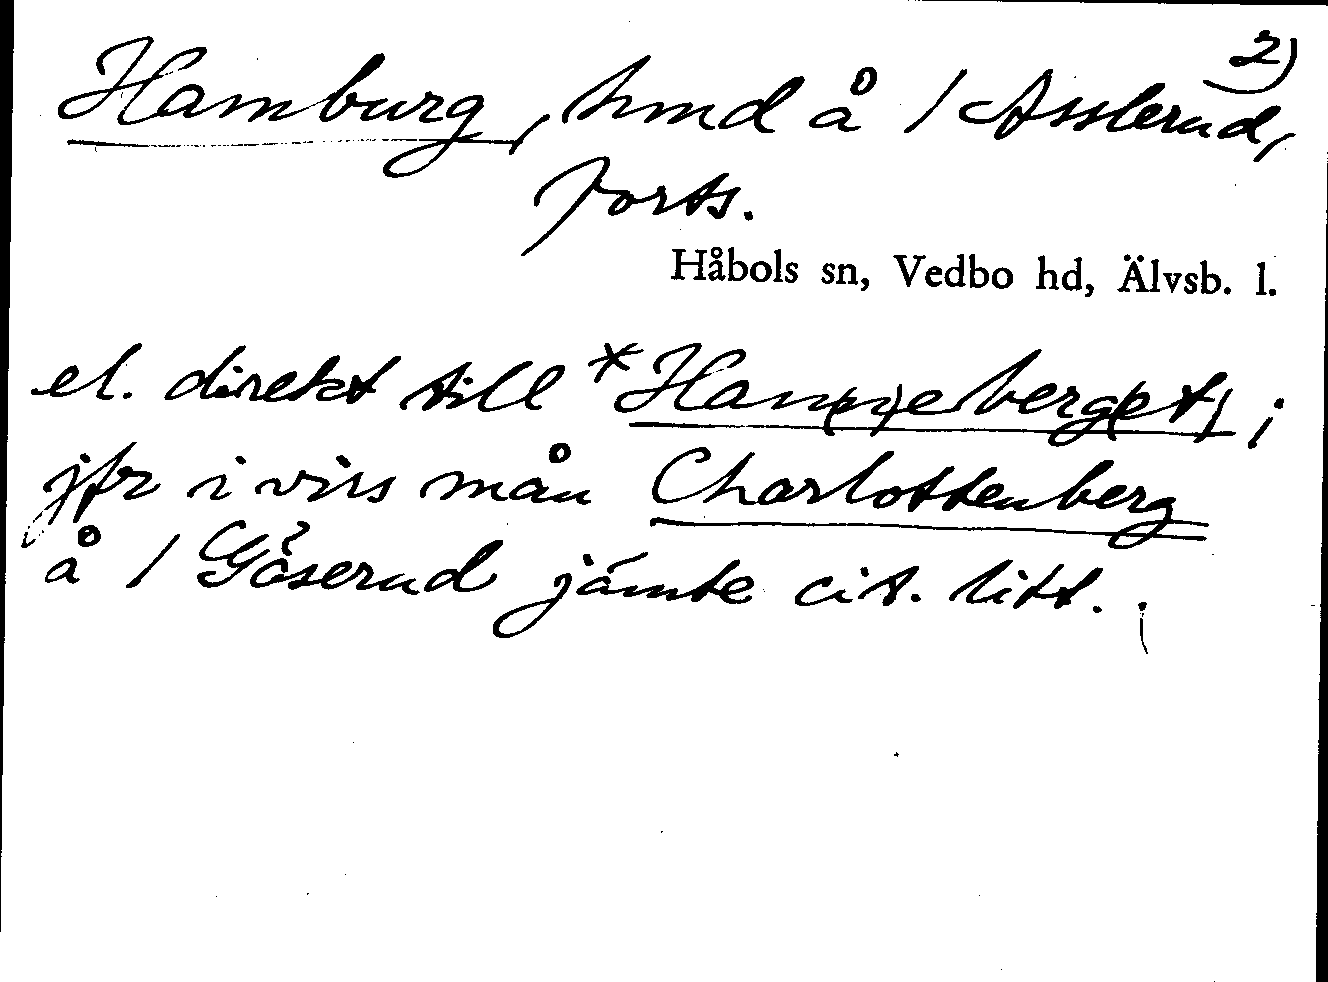 2)
Hamburg, hmd å / Asslerud,
forts.
Håbols sn, Vedbo hd, Älvsb. l.
el. direkt till *Han(n)eberg(et);
jfr i viss mån Charlottenberg
å / Gåserud jämte cit. litt.